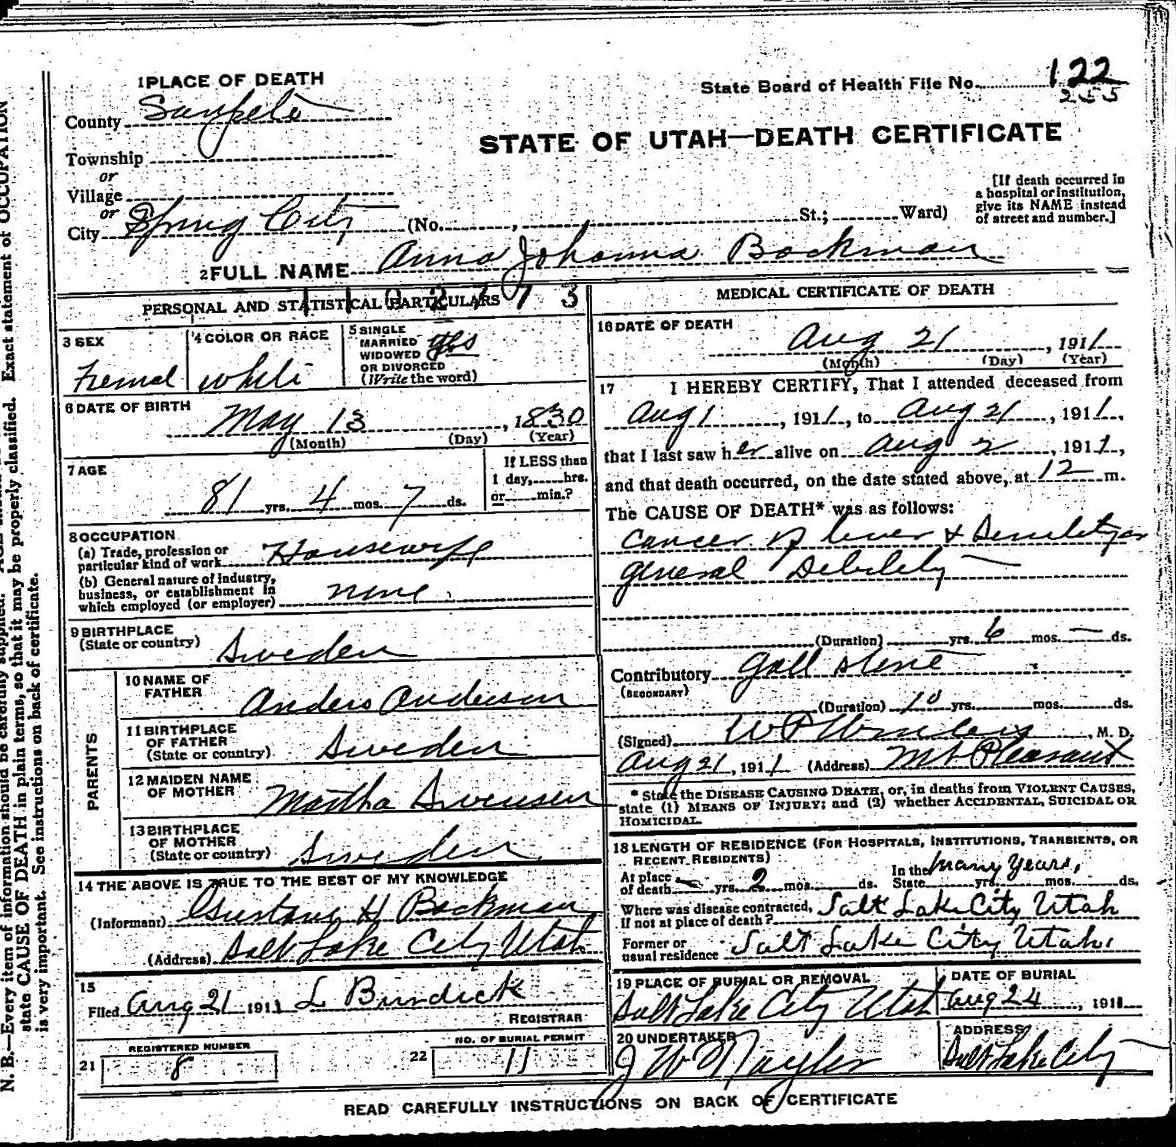 1 PLACE OF DEATH
State Board of Health File No. 122
255
County Sanpete
STATE OF UTAH—DEATH CERTIFICATE
Township
or
Village
or
City Spring City (No. , St.; Ward)
[If death occurred in
a hospital or institution,
give its NAME instead
of street and number.]
2 FULL NAME Anna Johanna Bockman
PERSONAL AND STATISTICAL PARTICULARS
3 SEX
Femal
4 COLOR OR RACE
white
5 SINGLE
MARRIED yes
WIDOWED
OR DIVORCED
(Write the word)
6 DATE OF BIRTH
May 13, 1830
(Month) (Day) (Year)
7 AGE
81 yrs. 4 mos. 7 ds.
If LESS than
1 day, hrs.
or min.?
8 OCCUPATION
(a) Trade, profession or
particular kind of work Housewife
(b) General nature of industry,
business, or establishment in
which employed (or employer) none
9 BIRTHPLACE
(State or country) Sweden
PARENTS
10 NAME OF
FATHER Anders Anderson
11 BIRTHPLACE
OF FATHER
(State or country) Sweden
12 MAIDEN NAME
OF MOTHER Martha Swensen
13 BIRTHPLACE
OF MOTHER
(State or country) Sweden
14 THE ABOVE IS TRUE TO THE BEST OF MY KNOWLEDGE
(Informant) Gustave H Bockman
(Address) Salt Lake City Utah
15
Filed Aug 21 1911 L Burdick
REGISTRAR
21 REGISTERED NUMBER
8
22 NO. OF BURIAL PERMIT
11
MEDICAL CERTIFICATE OF DEATH
16 DATE OF DEATH
Aug 21, 1911
(Month) (Day) (Year)
17 I HEREBY CERTIFY, That I attended deceased from
Aug 1, 1911, to Aug 21, 1911,
that I last saw her alive on Aug 2, 1911,
and that death occurred, on the date stated above, at 12 m.
The CAUSE OF DEATH* was as follows:
Cancer of liver &
general Debility
(Duration) yrs. 6 mos. — ds.
Contributory Gall stone
(SECONDARY)
(Duration) 10 yrs. mos. ds.
(Signed) W P, M. D.
Aug 21, 1911 (Address) Mt Pleasant
* State the DISEASE CAUSING DEATH, or, in deaths from VIOLENT CAUSES,
state (1) MEANS OF INJURY; and (2) whether ACCIDENTAL, SUICIDAL OR
HOMICIDAL.
18 LENGTH OF RESIDENCE (FOR HOSPITALS, INSTITUTIONS, TRANSIENTS, OR
RECENT RESIDENTS)
At place
of death — yrs. 2 mos. ds. In the State many years, yrs. mos. ds.
Where was disease contracted,
If not at place of death? Salt Lake City Utah
Former or
usual residence Salt Lake City Utah.
19 PLACE OF BURIAL OR REMOVAL
Salt Lake City Utah
DATE OF BURIAL
Aug 24, 1911
20 UNDERTAKER
J W Naylor
ADDRESS
Salt Lake City
READ CAREFULLY INSTRUCTIONS ON BACK OF CERTIFICATE
N. B.—Every item of information should be carefully supplied.
state CAUSE OF DEATH in plain terms, so that it may be properly classified. Exact statement of OCCUPATION
is very important. See instructions on back of certificate.